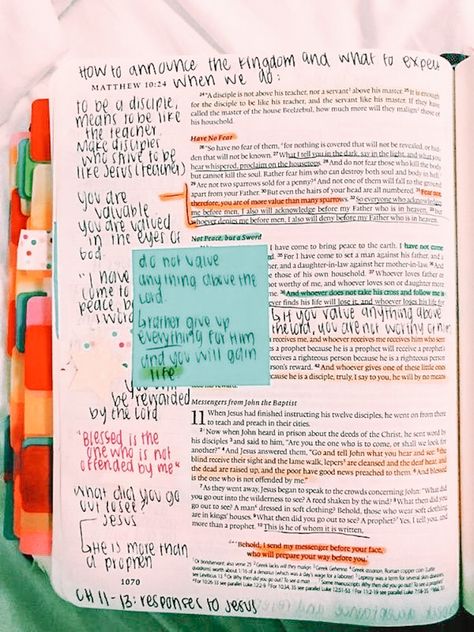 How to announce the kingdom and what to expect
when we do:
MATTHEW 10:24
to be a disciple,
means to be like
the teacher.
Make disciples
who strive to be
like Jesus (teacher)
You are
valuable
you are valued
in the eyes of
God.
"I have
come to
peace, b
a sword
will
be rewarded
by the Lord
"Blessed is the
one who is not
offended by me"
What did you go
out to see?
Jesus
He is more than
a prophet
1070
CH 11-13: responses to Jesus
do not value
anything above the
Lord.
rather give up
everything for Him
and you will gain
life
24 "A disciple is not above his teacher, nor a servant above his master. 25 It is enough
for the disciple to be like his teacher, and the servant like his master. If they have
called the master of the house Beelzebul, how much more will they malign those of
his household.
Have No Fear
26 "So have no fear of them, for nothing is covered that will not be revealed, or hid-
den that will not be known. 27 What I tell you in the dark, say in the light, and what you
hear whispered, proclaim on the housetops. 28 And do not fear those who kill the body
but cannot kill the soul. Rather fear him who can destroy both soul and body in hell.
29 Are not two sparrows sold for a penny? And not one of them will fall to the ground
apart from your Father. 30 But even the hairs of your head are all numbered. 31 Fear not,
therefore; you are of more value than many sparrows. 32 So everyone who acknowledges
me before men, I also will acknowledge before my Father who is in heaven, 33 but
whoever denies me before men, I also will deny before my Father who is in heaven.
Not Peace, but a Sword
I have come to bring peace to the earth. I have not come
35 For I have come to set a man against his father, and a
and a daughter-in-law against her mother-in-law. 36 And
those of his own household. 37 Whoever loves father or
not worthy of me, and whoever loves son or daughter more
38 And whoever does not take his cross and follow me is
finds his life will lose it, and whoever loses his life for
If you value anything above
the Lord, you are not worthy of Him
me, and whoever receives me receives him who sent
a prophet because he is a prophet will receive a
receives a righteous person because he is a righteous
person's reward. 42 And whoever gives one of these little ones
because he is a disciple, truly, I say to you, he will by no means
his reward."
Messengers from John the Baptist
11 When Jesus had finished instructing his twelve disciples, he went on from there
to teach and preach in their cities.
2 Now when John heard in prison about the deeds of the Christ, he sent word by
his disciples 3 and said to him, "Are you the one who is to come, or shall we look for
another?" 4 And Jesus answered them, "Go and tell John what you hear and see: 5 the
blind receive their sight and the lame walk, lepers are cleansed and the deaf hear, and
the dead are raised up, and the poor have good news preached to them. 6 And blessed
is the one who is not offended by me."
7 As they went away, Jesus began to speak to the crowds concerning John: "What did
you go out into the wilderness to see? A reed shaken by the wind? 8 What then did you
go out to see? A man dressed in soft clothing? Behold, those who wear soft clothing
are in kings' houses. 9 What then did you go out to see? A prophet? Yes, I tell you, and
more than a prophet. 10 This is he of whom it is written,
"'Behold, I send my messenger before your face,
who will prepare your way before you.'